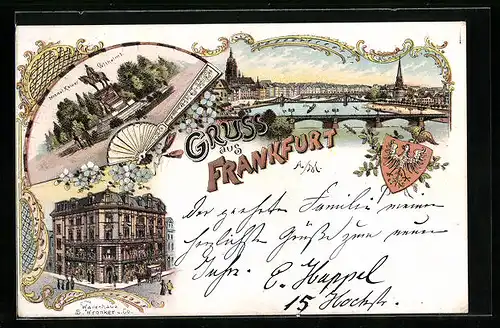 Denkmal Kaiser Wilhelms I
GRUSS
aus
FRANKFURT
a/M.
Der geehrten Familie meine
herzlichsten Grüße zum neuen
Jahr. C. Happel
15 Hochstr.
Warenhaus
S. Wronker & Co.